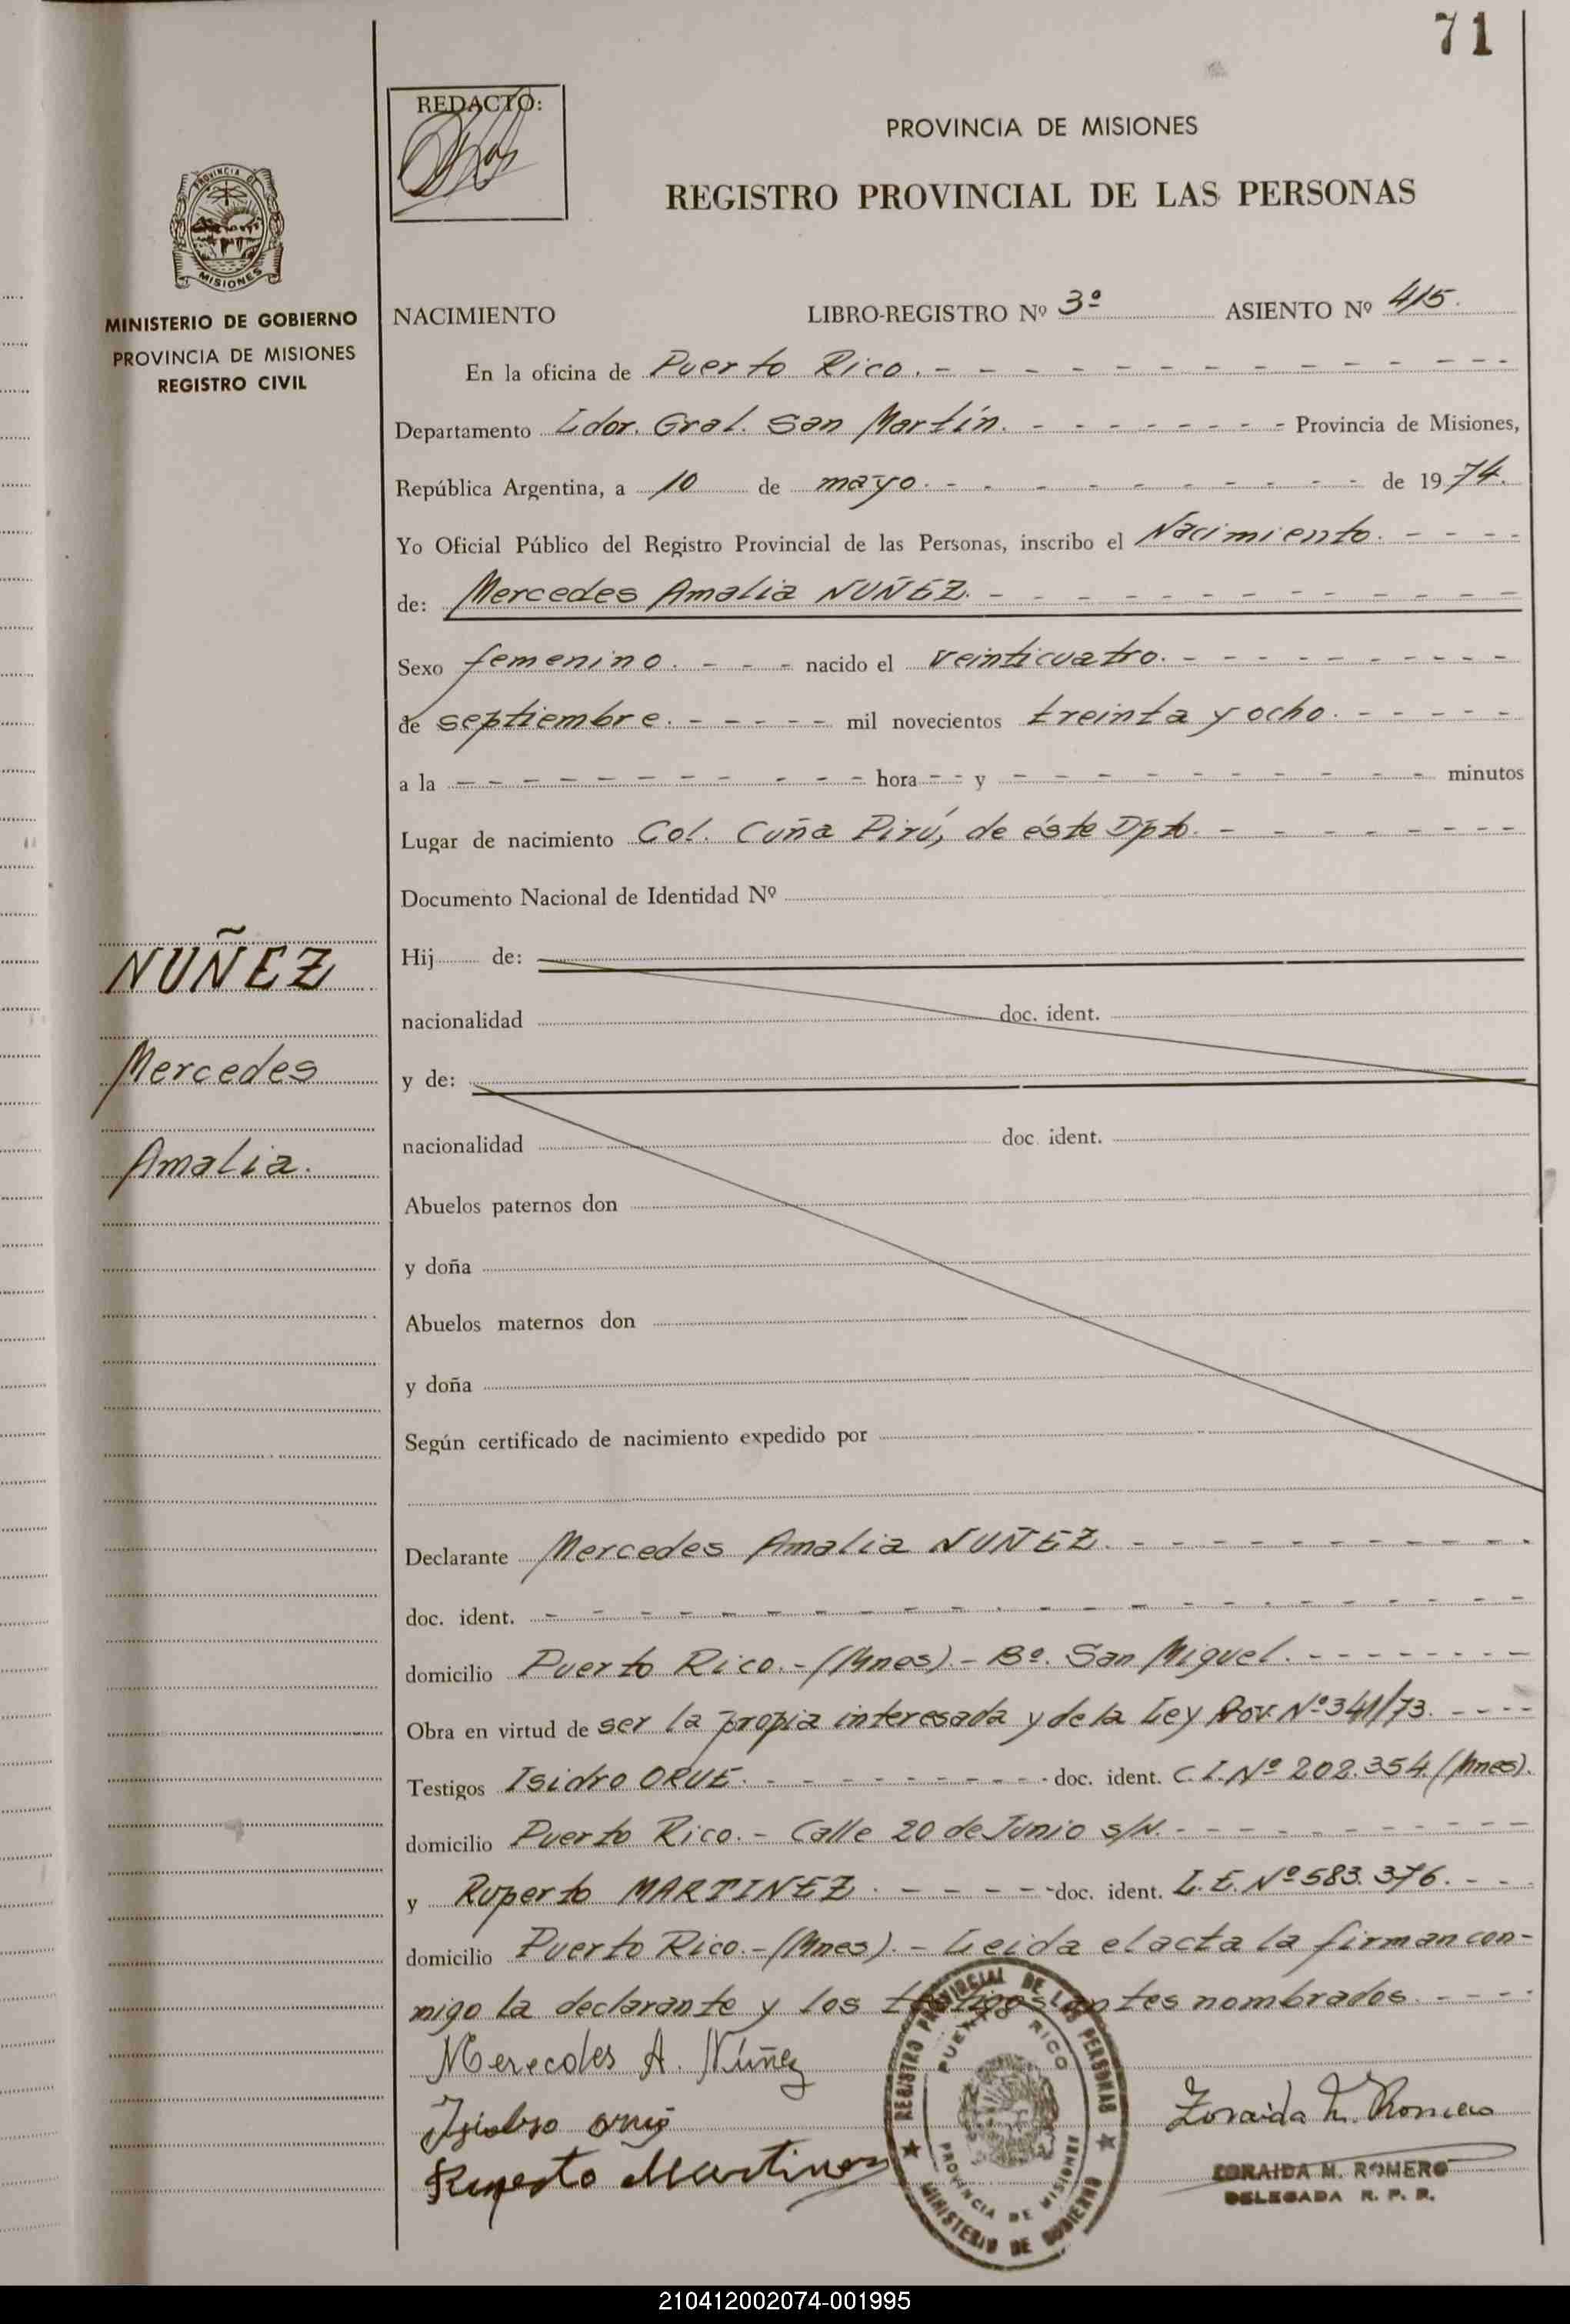 71
REDACTO:
PROVINCIA DE MISIONES
REGISTRO PROVINCIAL DE LAS PERSONAS
PROVINCIA DE
MISIONES
MINISTERIO DE GOBIERNO
PROVINCIA DE MISIONES
REGISTRO CIVIL
NACIMIENTO LIBRO-REGISTRO Nº 3º ASIENTO Nº 415.
En la oficina de Puerto Rico. - - - - - - - - - - - -
Departamento Ldor. Gral. San Martín. - - - - - - - - Provincia de Misiones,
República Argentina, a 10 de mayo. - - - - - - - - - - de 1974.
Yo Oficial Público del Registro Provincial de las Personas, inscribo el Nacimiento. - - - -
de: Mercedes Amalia NUÑEZ. - - - - - - - - - - - -
Sexo femenino. - - - nacido el veinticuatro. - - - - - - - - - -
de septiembre. - - - - - mil novecientos treinta y ocho. - - - - -
a la - - - - - - - - - - - hora - - y - - - - - - - - - - - minutos
Lugar de nacimiento Col. Cuña Pirú, de éste Dpto. - - - - - - - -
Documento Nacional de Identidad Nº
Hij de:
nacionalidad doc. ident.
y de:
nacionalidad doc. ident.
Abuelos paternos don
y doña
Abuelos maternos don
y doña
Según certificado de nacimiento expedido por
NUÑEZ
Mercedes
Amalia.
Declarante Mercedes Amalia NUÑEZ. - - - - - - - - - -
doc. ident. - - - - - - - - - - - - - - - - - - - -
domicilio Puerto Rico. - (Mnes). - Bº. San Miguel. - - - - - - - -
Obra en virtud de ser la propia interesada y de la Ley Prov. Nº 341/73. - - - -
Testigos Isidro ORUE. - - - - - - - - - doc. ident. C.I. Nº 202.354. (Mnes).
domicilio Puerto Rico. - Calle 20 de Junio s/N. - - - - - - - - - -
y Ruperto MARTINEZ. - - - - - doc. ident. L.E. Nº 583.376. - - -
domicilio Puerto Rico. - (Mnes). - Leida el acta la firman con-
migo la declarante y los testigos antes nombrados. - - - -
Merecdes A. Núñez
Ruperto Martinez
Zoraida M. Romero
ZORAIDA M. ROMERO
DELEGADA R. P. R.
REGISTRO PROVINCIAL DE LAS PERSONAS
PUERTO RICO
PROVINCIA DE MISIONES
MINISTERIO DE GOBIERNO
210412002074-001995